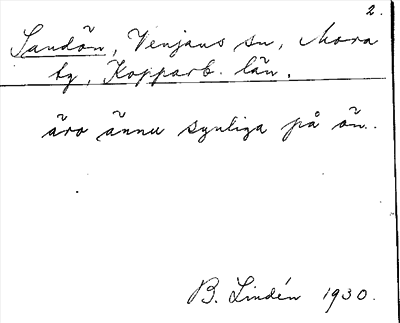 2.
Sandön, Venjans sn, Mora
tg, Kopparb. län.
äro ännu synliga på ön.
B. Lindén 1930.